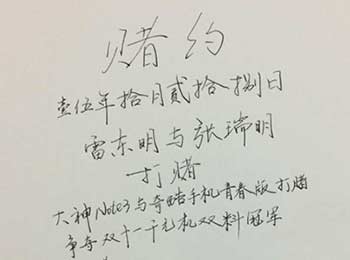 赌约
壹伍年拾月贰拾捌日
雷东明与张瑞明
打赌
大神Note3与奇酷手机青春版打赌
争夺双十一千元机双料冠军